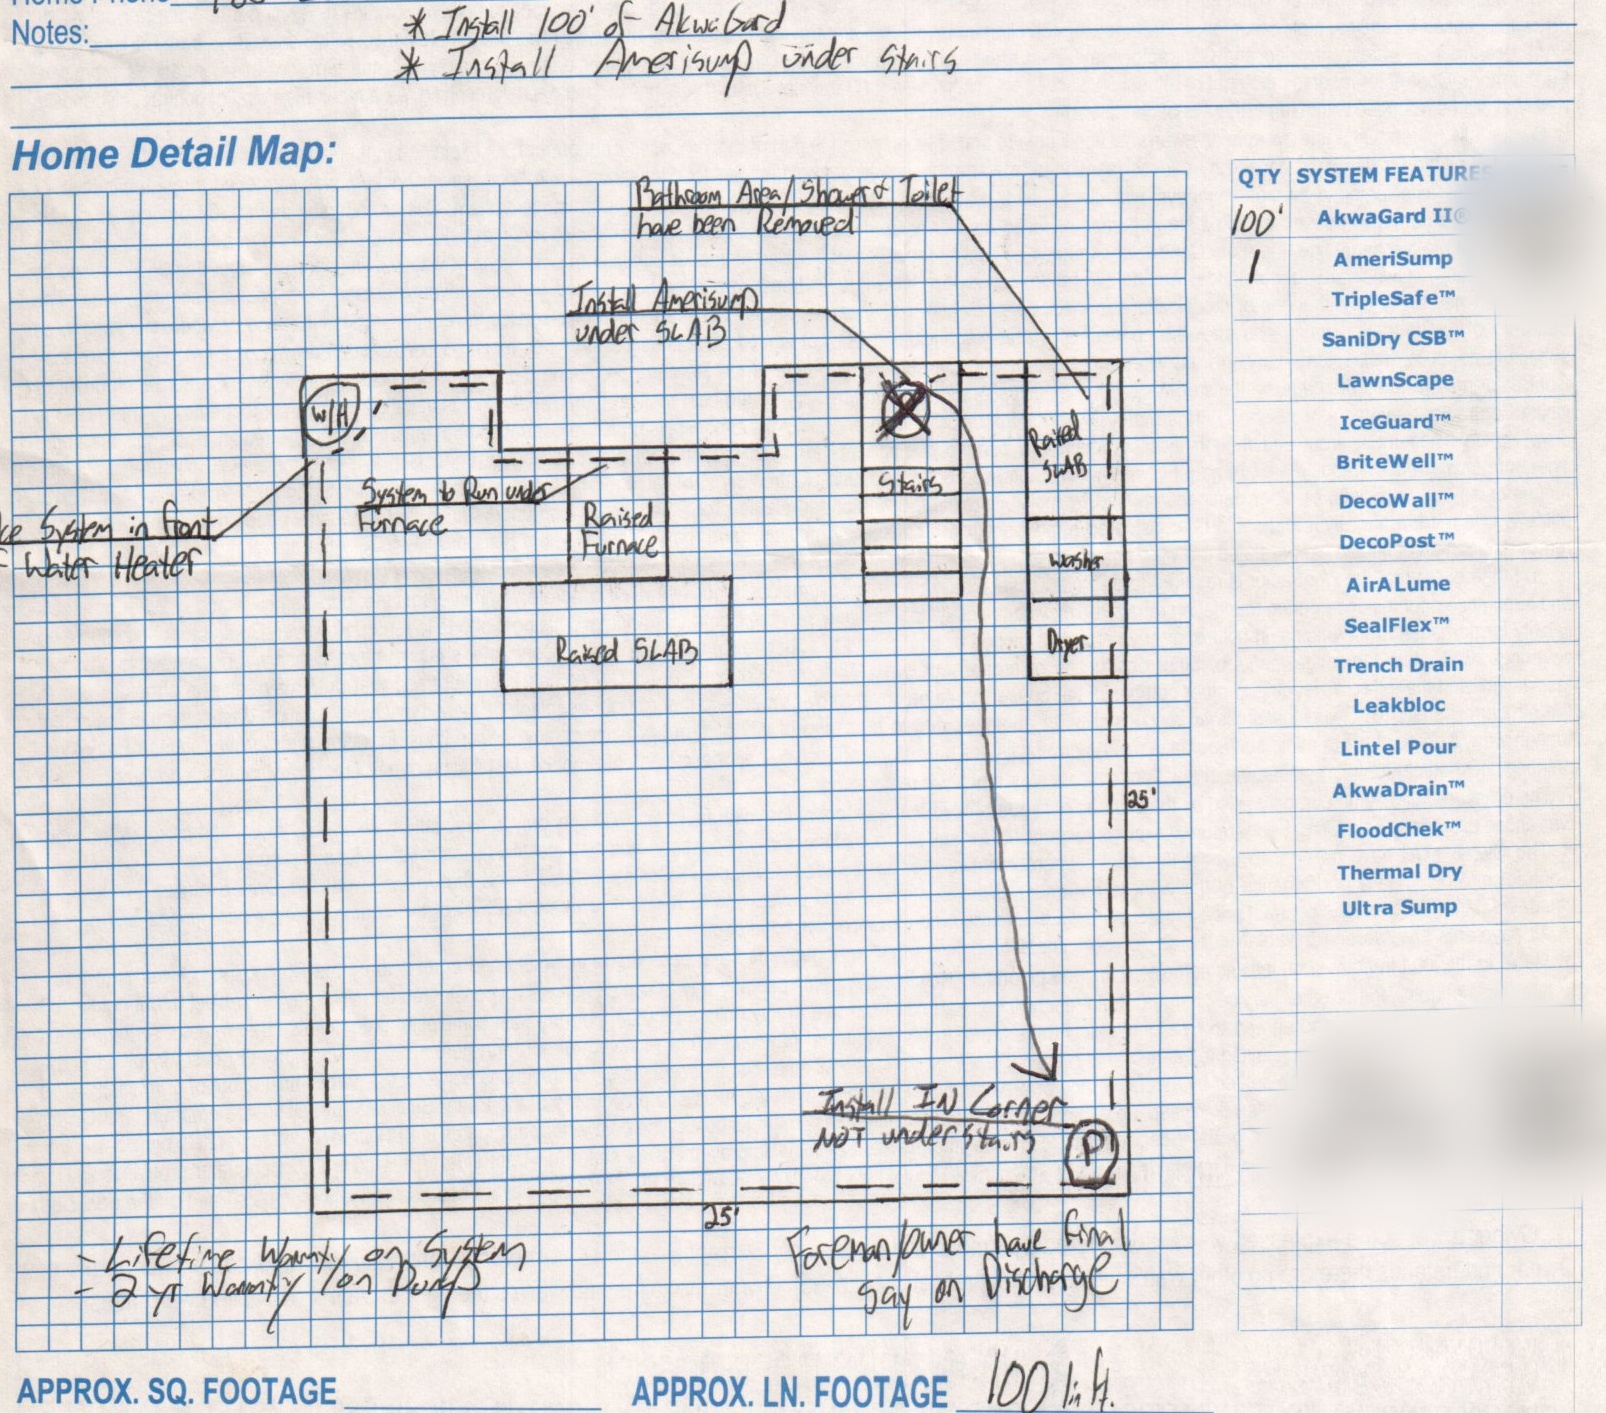 Home Phone
Notes:
* Install 100' of AkwaGard
* Install Amerisump under stairs
Home Detail Map:
Bathroom Area/Shower & Toilet
have been Removed
Install Amerisump
under SLAB
W/H
Raised
SLAB
Stairs
System to Run under
Furnace
Raised
Furnace
System in front
Water Heater
Washer
Raised SLAB
Dryer
25'
Install IN Corner
NOT under stairs
P
25'
- Lifetime Warranty on System
- 2 yr Warranty on Pump
Foreman/owner have final
Say on Discharge
APPROX. SQ. FOOTAGE
APPROX. LN. FOOTAGE 100 lin ft.
QTY SYSTEM FEATURES
100' AkwaGard II®
1 AmeriSump
TripleSafe™
SaniDry CSB™
LawnScape
IceGuard™
BriteWell™
DecoWall™
DecoPost™
AirALume
SealFlex™
Trench Drain
Leakbloc
Lintel Pour
AkwaDrain™
FloodChek™
Thermal Dry
Ultra Sump